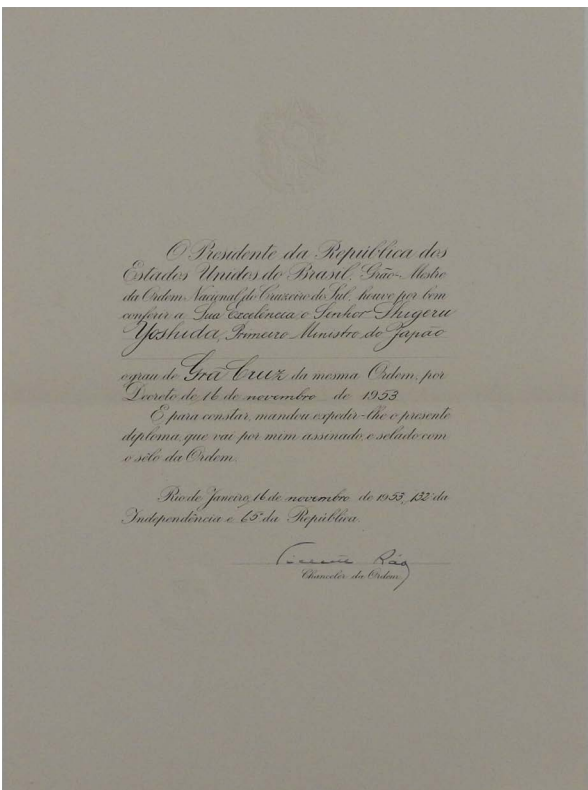 O Presidente da República dos
Estados Unidos do Brasil, Grão-Mestre
da Ordem Nacional do Cruzeiro do Sul, houve por bem
conferir a Sua Excelência o Senhor Shigeru
Yoshida, Primeiro Ministro do Japão
o grau de Grã Cruz da mesma Ordem, por
Decreto de 16 de novembro de 1953
E para constar, mandou expedir-lhe o presente
diploma, que vai por mim assinado e selado com
o sêlo da Ordem.
Rio de Janeiro, 16 de novembro de 1953, 132 da
Independência e 65º da República.
Vicente Ráo
Chanceler da Ordem